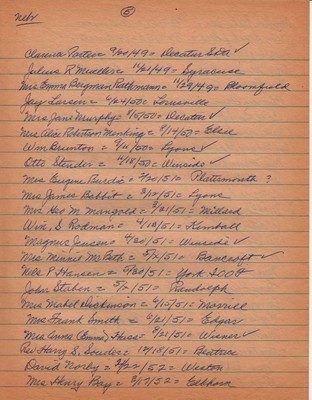 Nebr
5
Clarence Potter = 9/20/49 = Decatur ✓
Julius R Mueller = 11/21/49 = Syracuse
Mrs Emma Bergman Rathmann = 11/29/49 = Bloomfield
Jay Larsen = 6/24/50 = Louisville
Mrs Jane Murphy = 8/5/50 = Decatur ✓
Mrs Alice Robertson Monking = 9/14/50 =
Wm Brunton = 9/21/50 = Lyons ✓
Otto Steuder = 11/18/50 = Winside ✓
Mrs Eugene Burdic = 2/20/51 Plattsmouth ?
Mrs James Babbit = 3/17/51 = Lyons
Mrs Geo M. Mangold = 3/21/51 = Millard
Wm. S Rodman = 4/18/51 = Kimball
Magnus Jensen = 4/20/51 = Winside ✓
Mrs Minnie McBeth = 5/2/51 = Bancroft ✓
Nels P Hansen = 5/30/51 = York
John Stuben = 5/2/51 = Randolph
Mrs Mabel Dickinson = 6/15/51 = Morrill
Mrs Frank Smith = 6/21/51 = Edgar
Mrs Emma (Bauer) Hass = 8/21/51 = Wisner ✓
Rev Harry S. Souder = 12/15/51 = Beatrice
David Norby = 2/22/52 = Weston
Mrs Henry Bay = 3/17/52 = Elkhorn